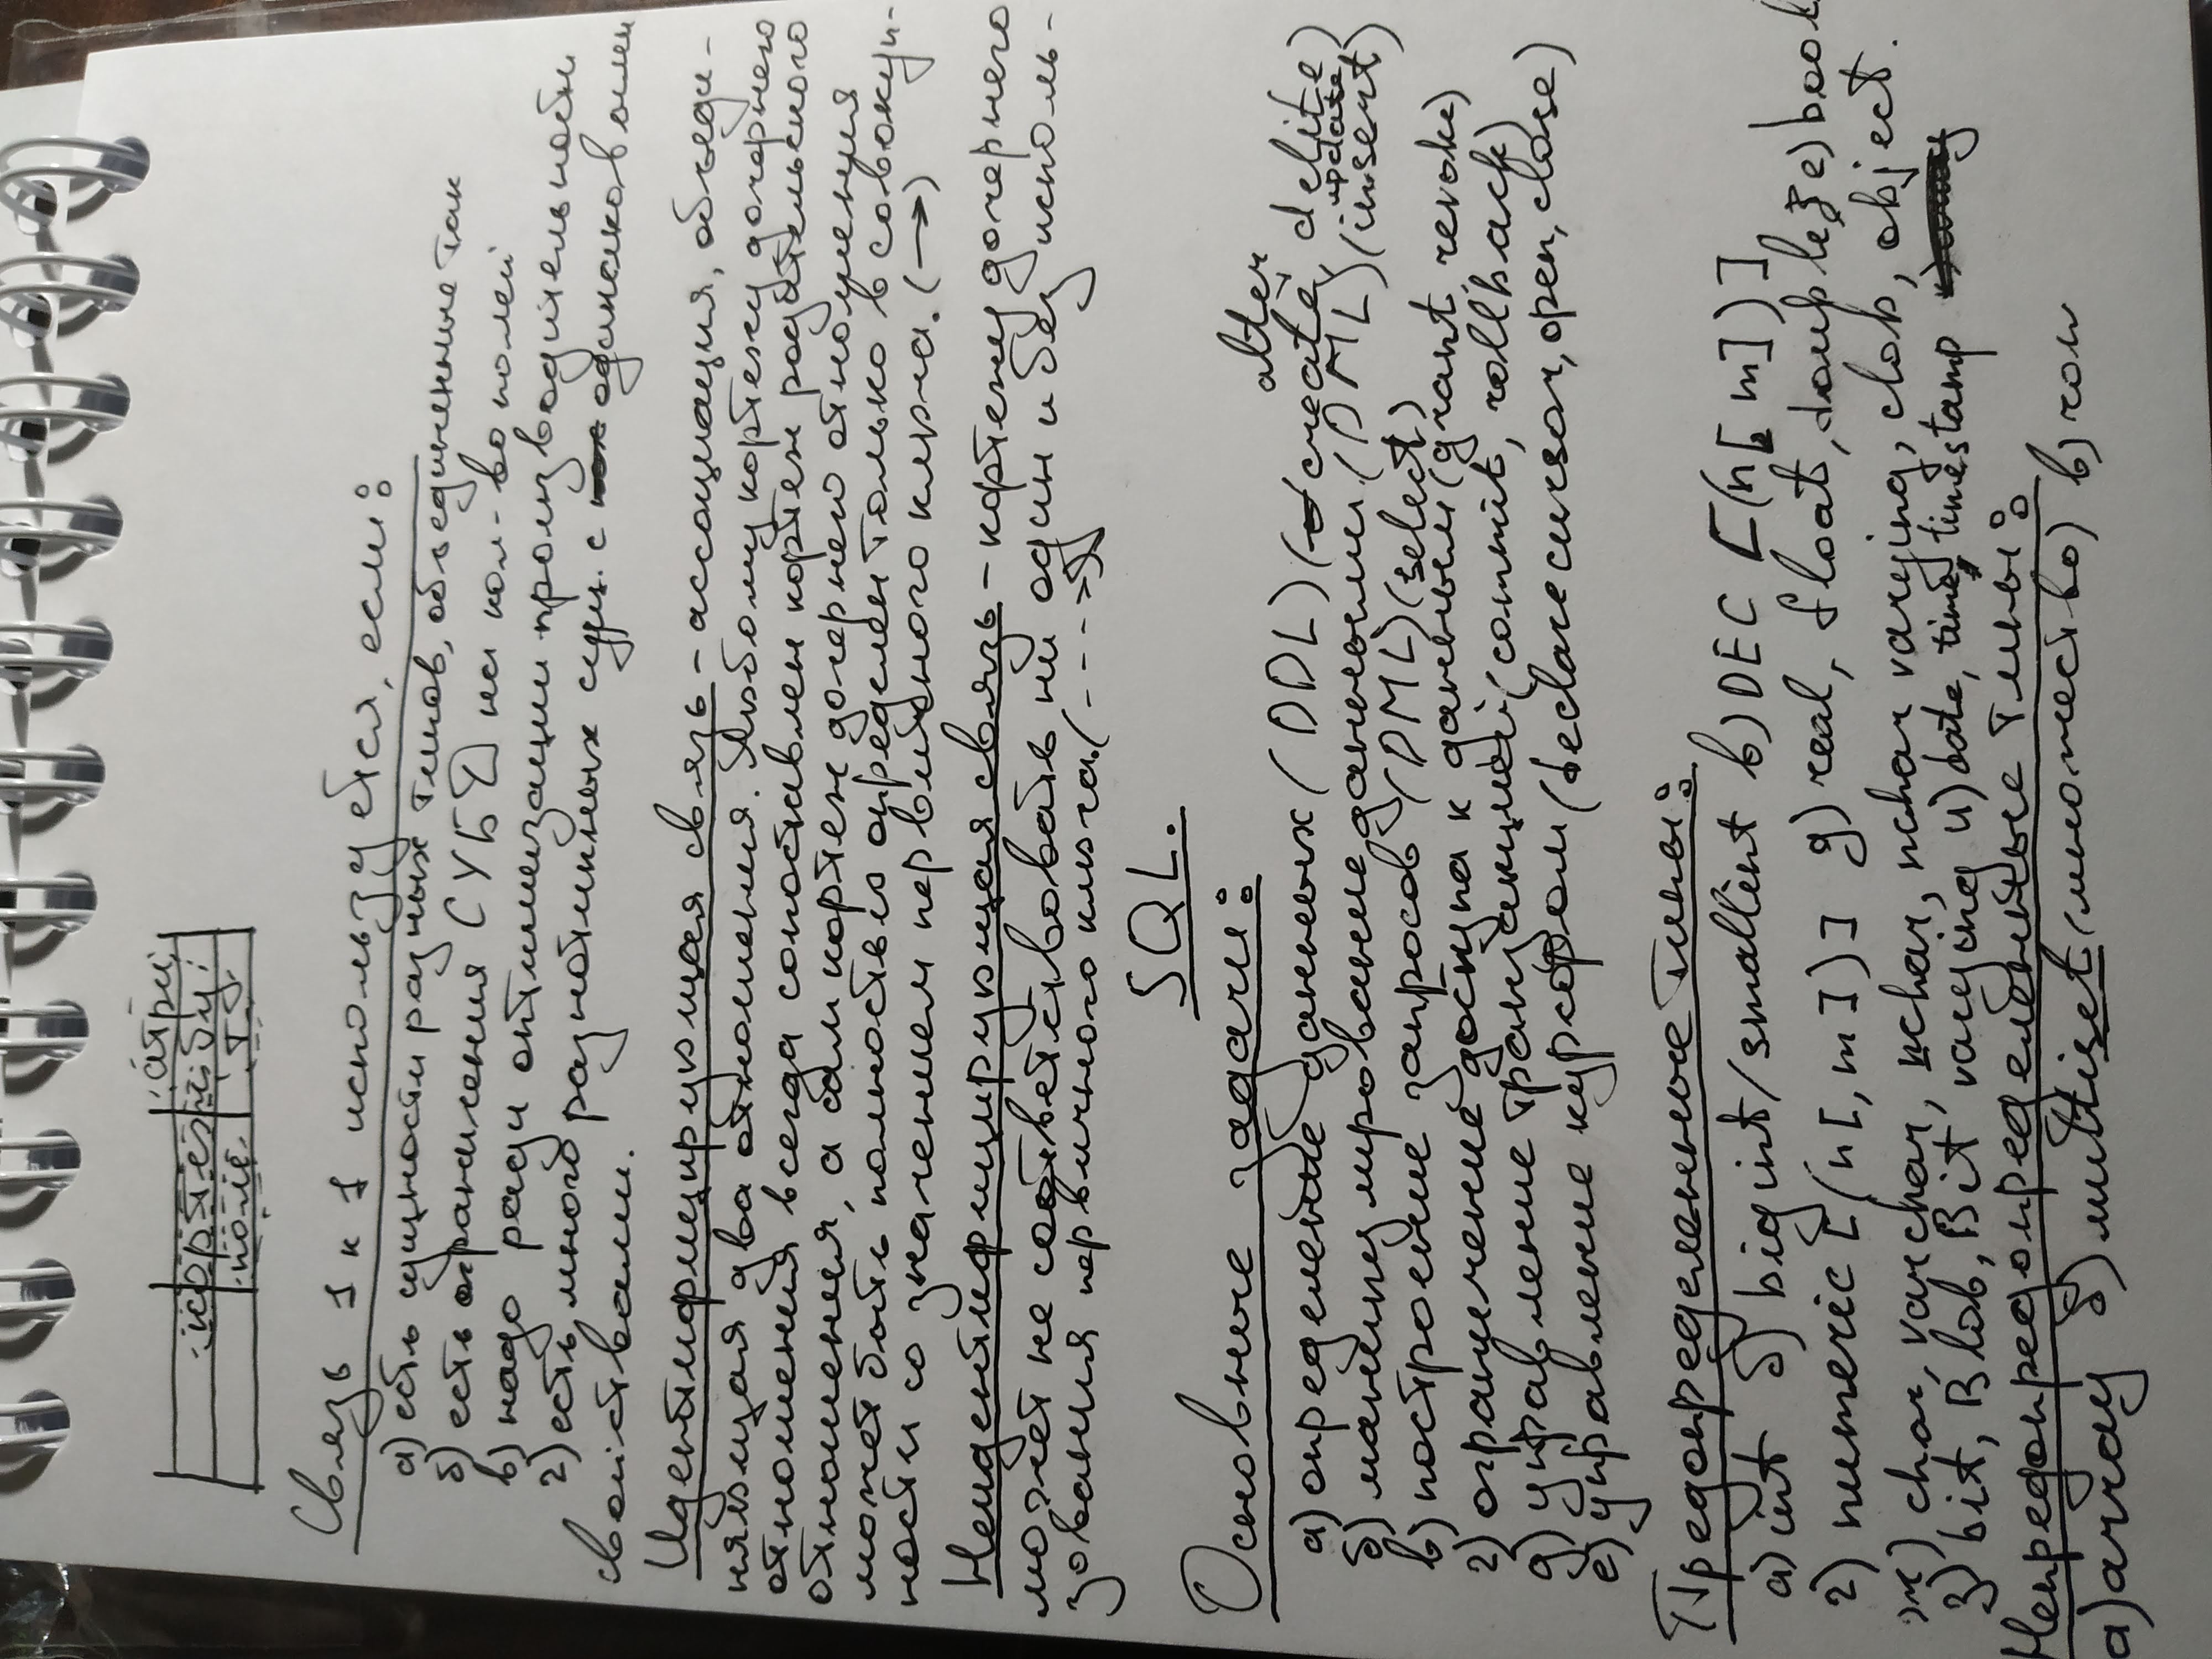 атри
кортеж бу
поле т
Связь 1 к 1 используется, если:
а) есть сущности разных типов, объединенные так
б) есть ограничения СУБД на кол-во полей
в) надо ради оптимизации производительности
г) есть много разнотипных сущ. с одинаковыми
свойствами.
Идентифицирующая связь - ассоциация, объеди-
няющая два отношения. Любому кортежу дочернего
отношения всегда сопоставлен кортеж родительского
отношения, а сам кортеж дочернего отношения
может быть полностью определен только в совокуп-
ности со значением первичного ключа. (→)
Неидентифицирующая связь - кортежу дочернего
может не соответствовать ни один и без исполь-
зования первичного ключа. (--->)
SQL.
Основные задачи:
alter
а) определение данных (DDL) (create, delite)
update,
б) манипулирование данными (DML) (insert)
в) построение запросов (DML) (select)
г) ограничение доступа к данным (grant, revoke)
д) управление транзакцией (commit, rollback)
е) управление курсором (declare cursor, open, close)
Предопределенные типы:
а) int б) bigint/smallint в) DEC [(n[, m])]
г) numeric [(n[, m])] д) real, float, double е) bool
ж) char, varchar, nchar, nchar varying, clob, object.
з) bit, Blob, Bit varying и) date, time, timestamp
Непредопределенные типы:
а) array б) multiset (множество) в) row